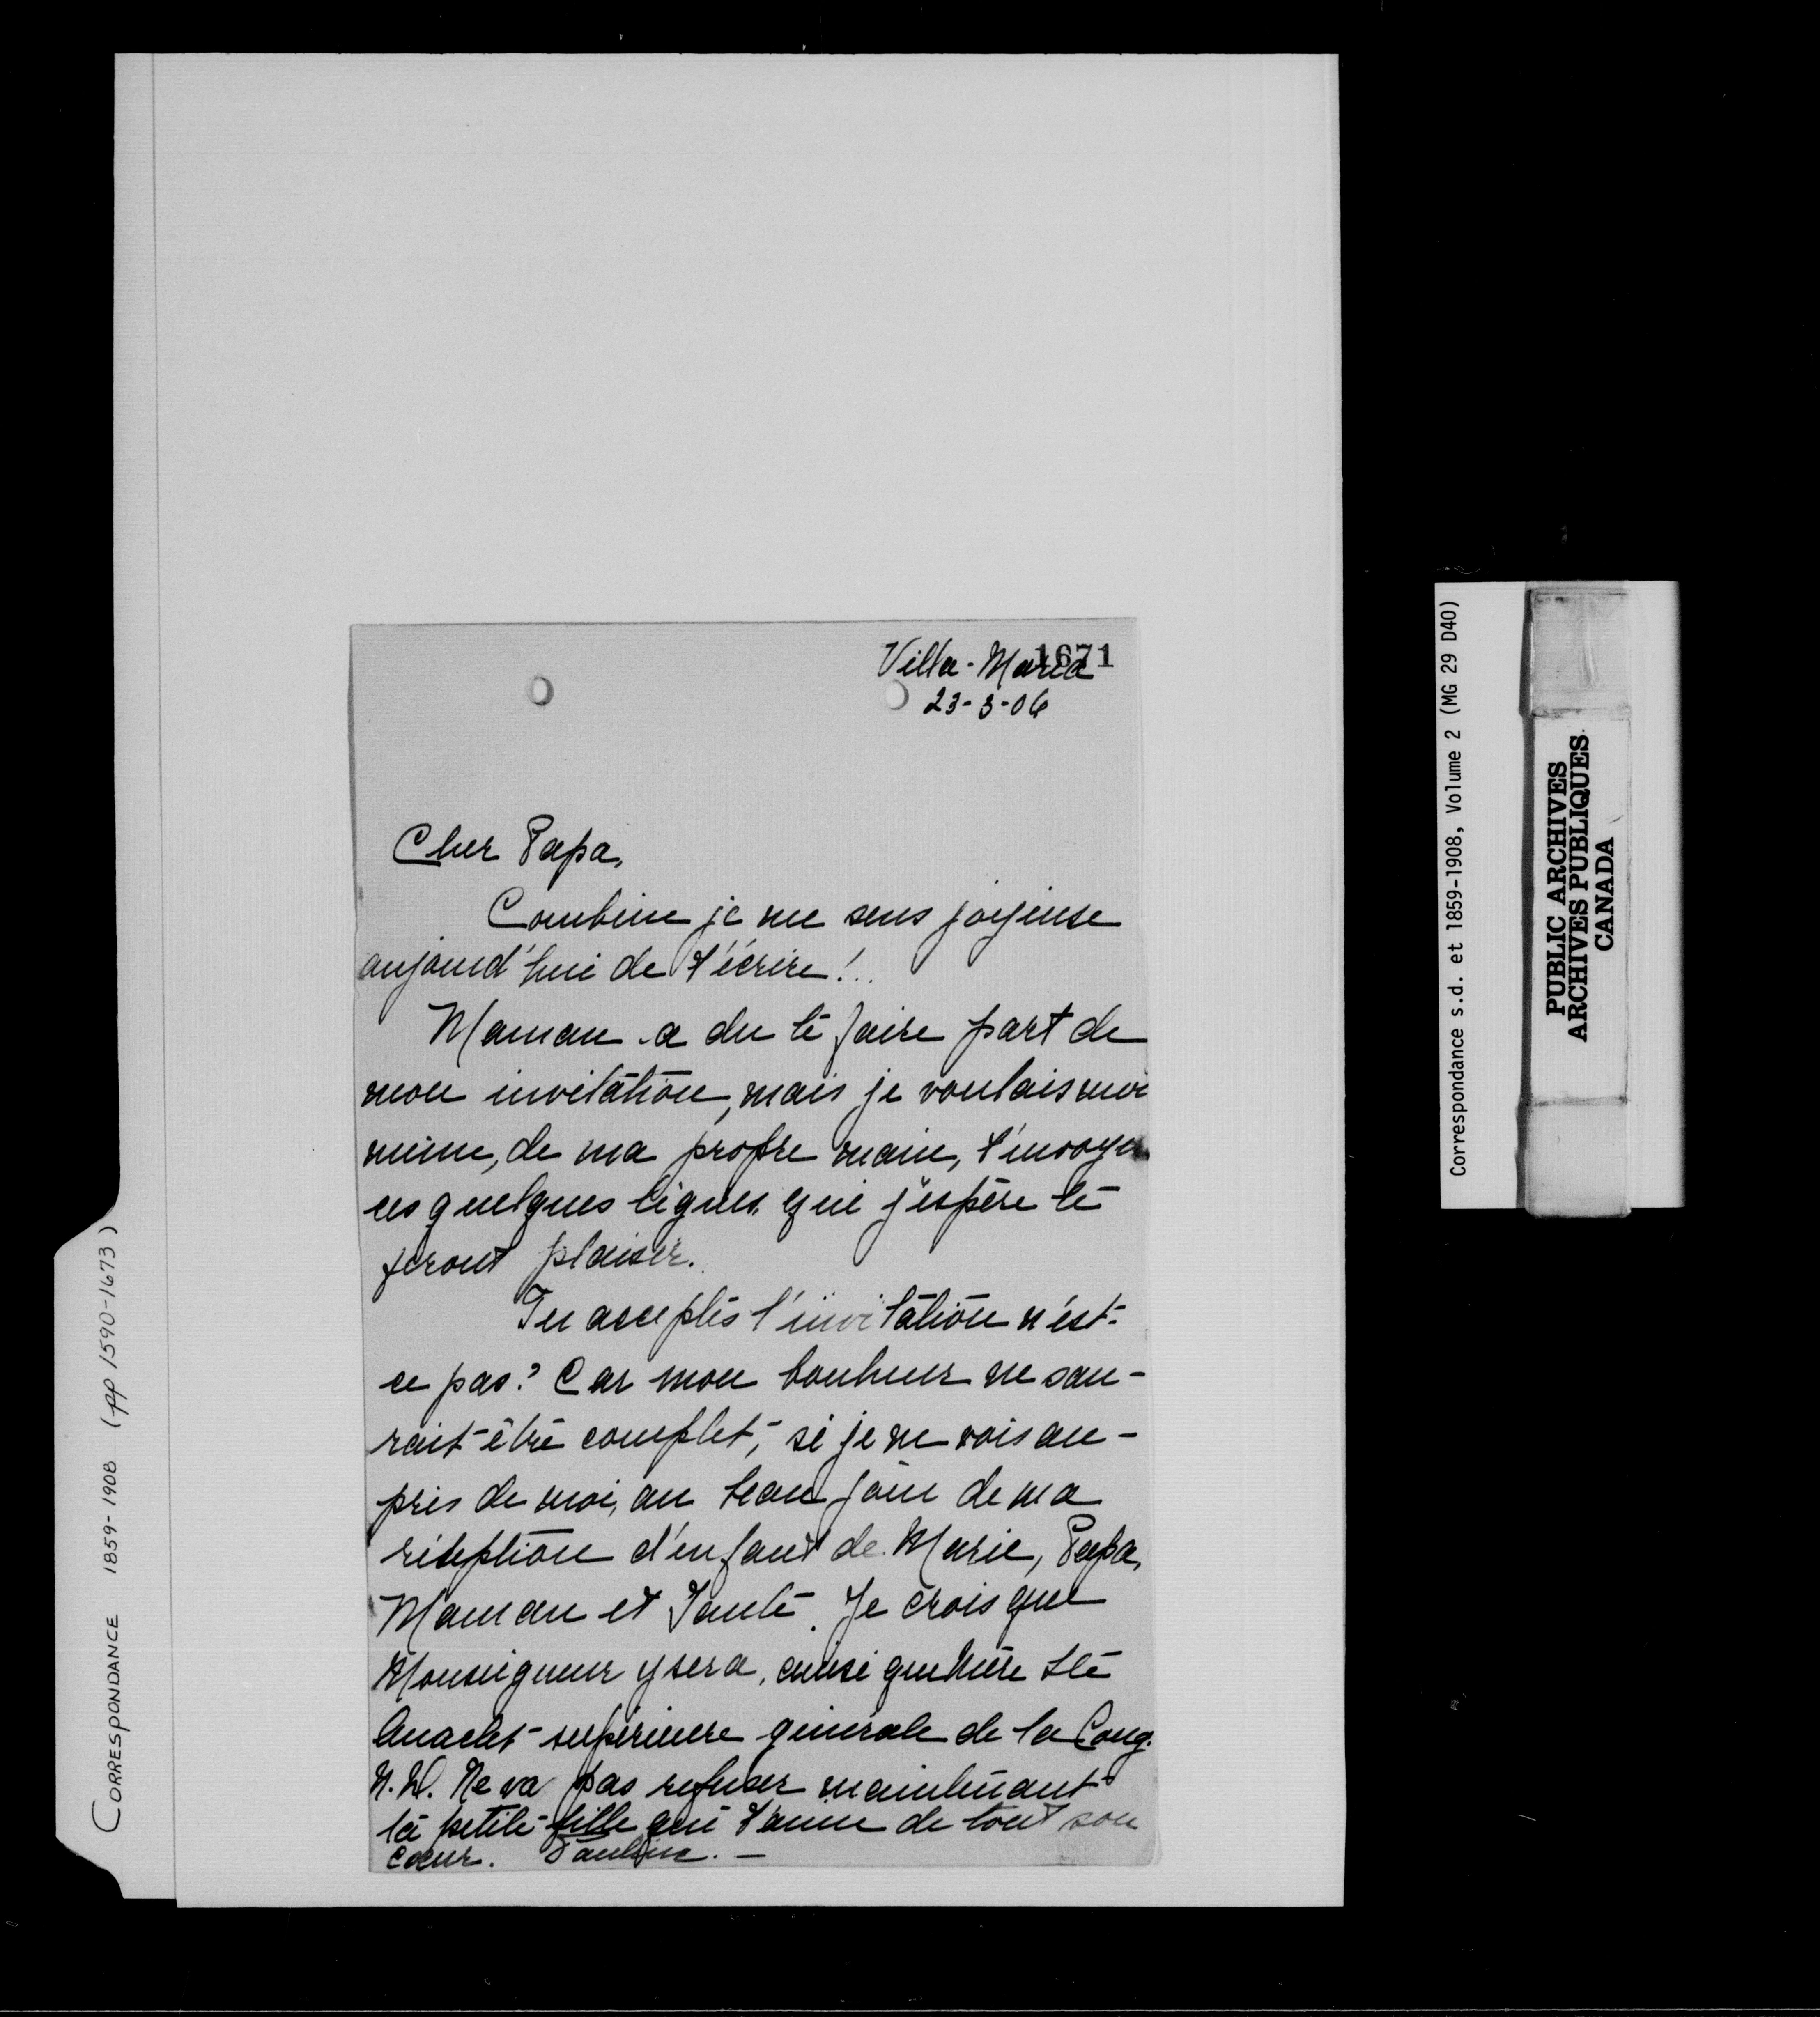 1671
Villa-Maria
23-3-06
Cher Papa,
Combien je me sens joyeuse
aujourd'hui de t'écrire!..
Maman a du te faire part de
mon invitation, mais je voulais moi
même, de ma propre main, t'envoyer
ces quelques lignes qui j'espère te
feront plaisir.
Tu acceptes l'invitation n'est-
ce pas? Car mon bonheur ne sau-
rait être complet, si je ne vois au-
près de moi, au beau jour de ma
réception d'enfant de Marie, Papa,
Maman et Tante. Je crois que
Monseigneur y sera, ainsi que Mère Ste
Anaclet supérieure générale de la Cong.
N.D. Ne va pas refuser maintenant
ta petite fille qui t'aime de tout son
cœur. Pauline. —
CORRESPONDANCE 1859-1908 (pp 1590-1673)
Correspondance s.d. et 1859-1908, Volume 2 (MG 29 D40)
PUBLIC ARCHIVES
ARCHIVES PUBLIQUES
CANADA